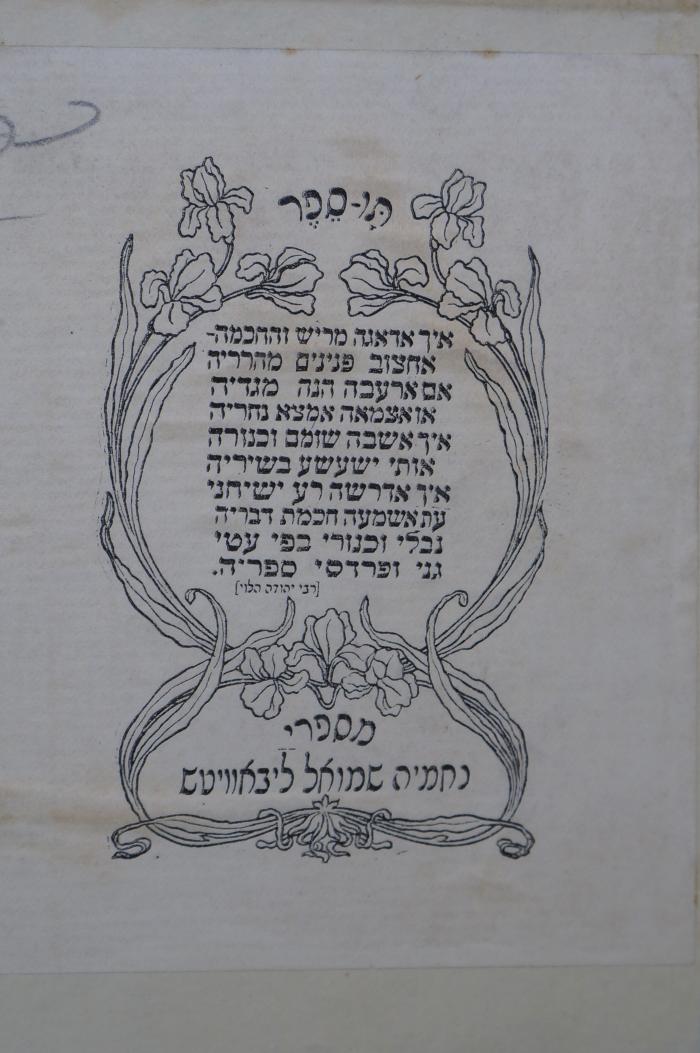 תָּו-סֵפֶר
איך אדאגה מריש והחכמה-
אחצוב פנינים מהרריה
אם ארעבה הנה מגדיה
או אצמאה אמצא נהריה
איך אשבה שומם וכנורה
אותי ישעשע בשיריה
איך אדרשה רע ישיחני
עת אשמעה חכמת דבריה
נבלי וכנורי בפי עטי
גני ופרדסי ספריה.
[רבי יהודה הלוי]
מספרי
נחמיה שמואל ליבאוויטש